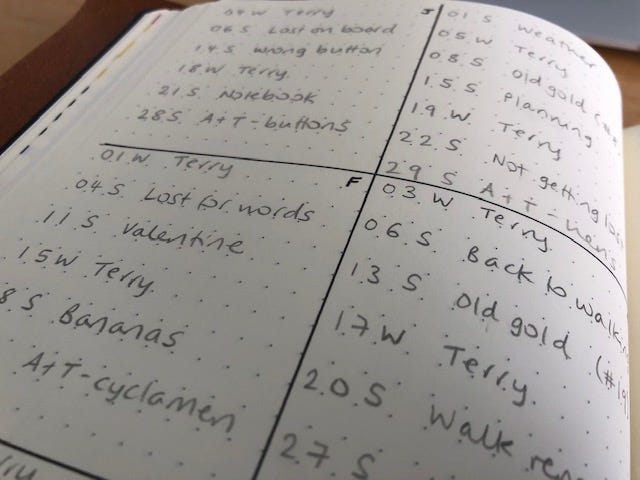 04 W Terry
06 S Lost on board
14 S wrong button
18 W Terry
21 S Notebook
28 S A+T-buttons
J
01 S Weather
05 W Terry
08 S Old gold
15 S Planning
19 W Terry
22 S Not getting lost
29 S A+T-
01 W Terry
04 S Lost for words
11 S Valentine
15 W Terry
8 S Bananas
A+T-cyclamen
F
03 W Terry
06 S Back to walk
13 S Old gold (#19
17 W Terry
20 S Walk
27 S